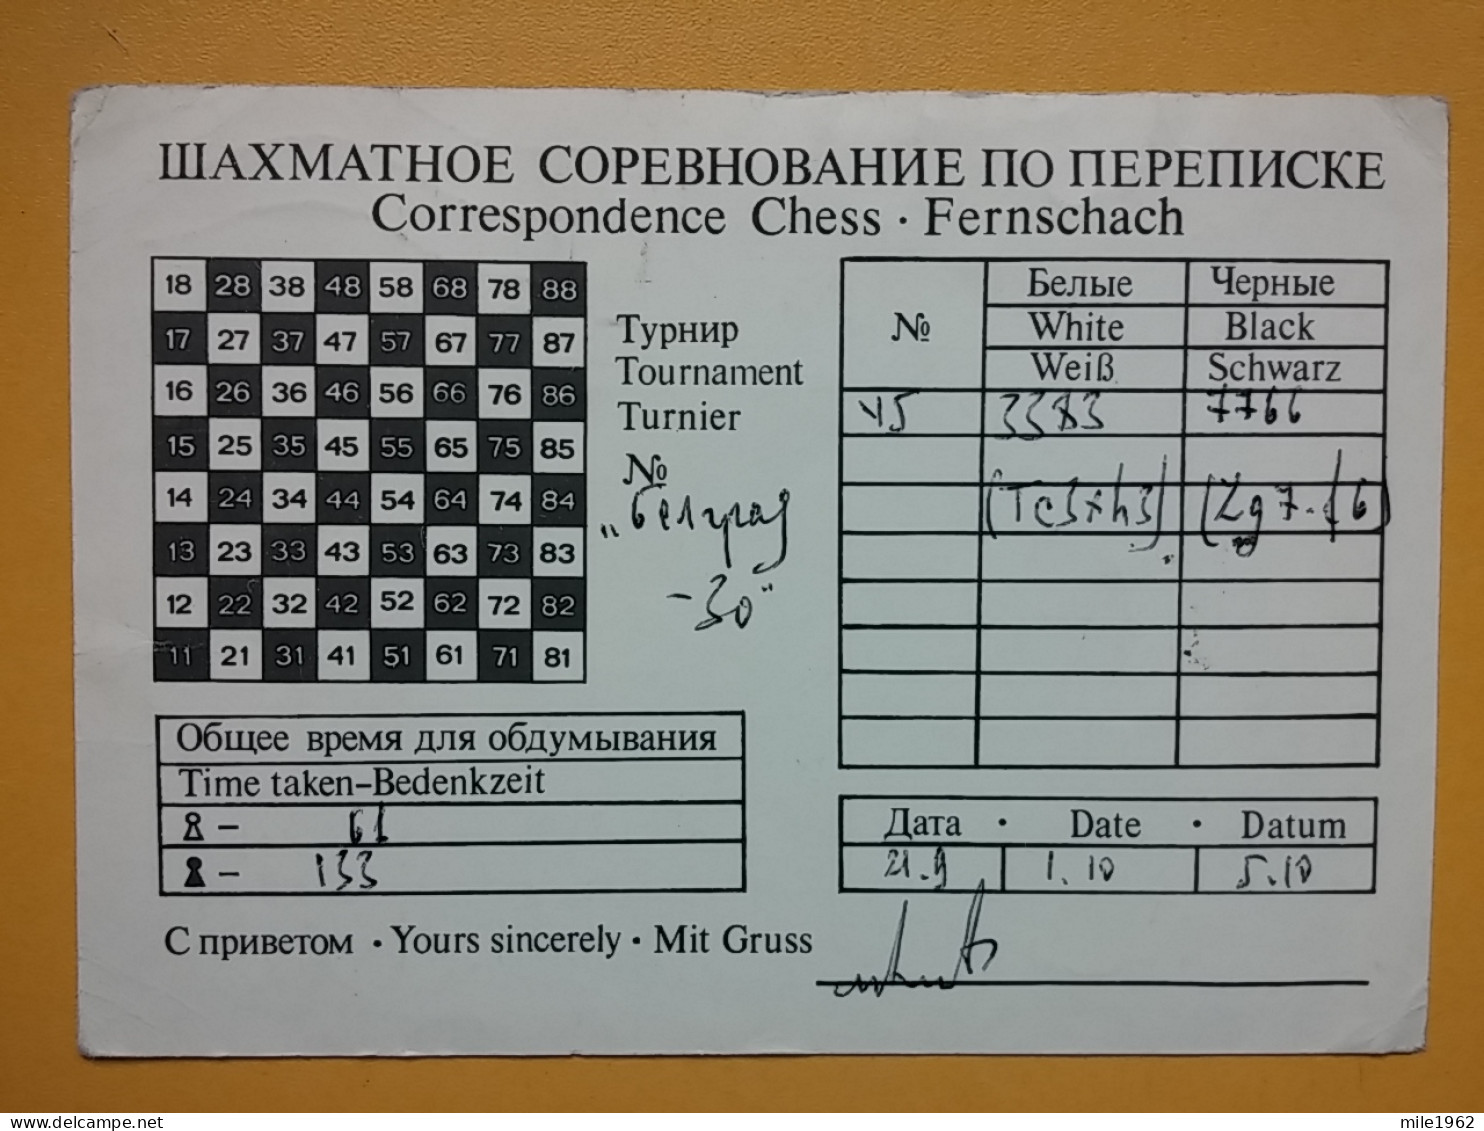 ШАХМАТНОЕ СОРЕВНОВАНИЕ ПО ПЕРЕПИСКЕ
Correspondence Chess · Fernschach
18 28 38 48 58 68 78 88
17 27 37 47 57 67 77 87
16 26 36 46 56 66 76 86
15 25 35 45 55 65 75 85
14 24 34 44 54 64 74 84
13 23 33 43 53 63 73 83
12 22 32 42 52 62 72 82
11 21 31 41 51 61 71 81
Турнир
Tournament
Turnier
№
„Белград
-30"
№ Белые Черные
White Black
Weiß Schwarz
45 3383 7766
(Tc3xh3) (Lg7-f6)
Общее время для обдумывания
Time taken–Bedenkzeit
– 61
– 133
Дата · Date · Datum
21.9 1.10 5.10
С приветом · Yours sincerely · Mit Gruss
mile1962